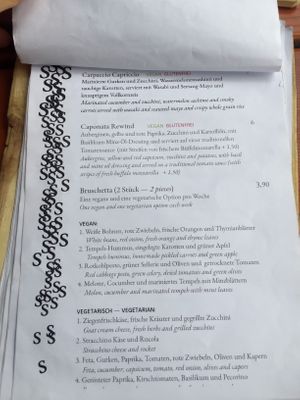 Carpaccio Capriccio VEGAN GLUTENFREI
Marinierte Gurken und Zucchini, Wassermelonentachini und
rauchige Karotten, serviert mit Wasabi und Sesam-Mayo und
knusprigem Vollkornreis
Marinated cucumber and zucchini, watermelon sashimi and smoky
carrots served with wasabi and sesame mayo and crispy whole grain rice
Caponata Rewind VEGAN GLUTENFREI 6
Auberginen, gelbe und rote Paprika, Zucchini und Kartoffeln, mit
Basilikum Minz-Öl-Dressing und serviert auf einer traditionellen
Tomatensauce (mit Streifen von frischem Büffelmozzarella + 1,50)
Aubergine, yellow and red capsicum, zucchini and potatoes, with basil
and mint oil dressing and served on a traditional tomato sauce (with
stripes of fresh buffalo mozzarella + 1.50)
Bruschetta (2 Stück — 2 pieces) 3,90
Eine vegane und eine vegetarische Option pro Woche
One vegan and one vegetarian option each week
VEGAN
1. Weiße Bohnen, rote Zwiebeln, frische Orangen und Thymianblätter
White beans, red onion, fresh orange and thyme leaves
2. Tempels Hummus, eingelegte Karotten und grüner Apfel
Tempels hummus, homemade pickled carrots and green apple
3. Rotkohlpesto, grüner Sellerie und Oliven und getrocknete Tomaten
Red cabbage pesto, green celery, dried tomatoes and green olives
4. Melone, Cucumber und mariniertes Tempeh mit Minzblättern
Melon, cucumber and marinated tempeh with mint leaves
VEGETARISCH — VEGETARIAN
1. Ziegenfrischkäse, frische Kräuter und gegrillte Zucchini
Goat cream cheese, fresh herbs and grilled zucchini
2. Stracchino Käse und Rucola
Stracchino cheese and rocket
3. Feta, Gurken, Paprika, Tomaten, rote Zwiebeln, Oliven und Kapern
Feta, cucumber, capsicum, tomato, red onion, olives and capers
4. Gerösteter Paprika, Kirschtomaten, Basilikum und Pecorino